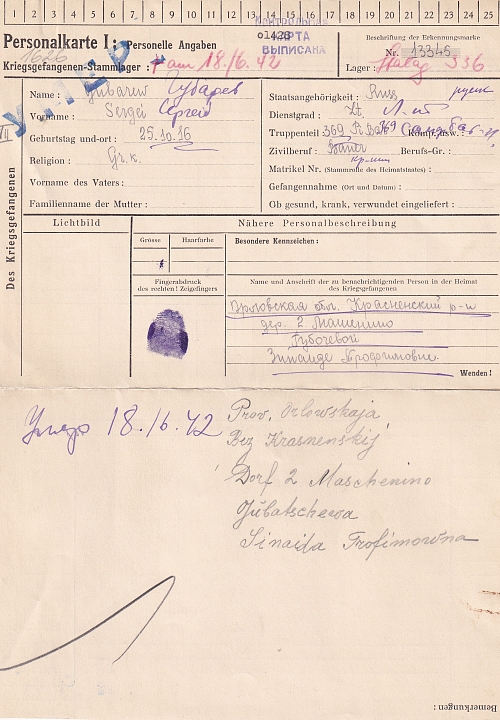 1 2 3 4 5 6 7 8 9 10 11 12 13 14 15 16 17 18 19 20 21 22 23 24 25
Personalkarte I: Personelle Angaben
Kriegsgefangenen-Stammlager:
† am 18./6. 42
КАРТА
ВЫПИСАНА
Beschriftung der Erkennungsmarke
Nr. 13345
Lager: Stalag 336
Des Kriegsgefangenen
Name: Gubarew Губарев
Vorname: Sergei Сергей
Geburtstag und-ort: 25.10.16
Religion: Gr. k.
Vorname des Vaters:
Familienname der Mutter:
Staatsangehörigkeit: Russ русск
Dienstgrad: Lt. Л-т
Truppenteil: 369 Komp. usw.:
Zivilberuf: Bauer Berufs-Gr.:
кр-нин
Matrikel Nr. (Stammrolle des Heimatstaates):
Gefangennahme (Ort und Datum):
Ob gesund, krank, verwundet eingeliefert:
Lichtbild
Nähere Personalbeschreibung
Grösse
Haarfarbe
Besondere Kennzeichen:
Fingerabdruck
des rechten! Zeigefingers
Name und Anschrift der zu benachrichtigenden Person in der Heimat
des Kriegsgefangenen
Орловская обл. Красненский р-н
дер. 2 Машенино
Губочевой
Зинаиде Трофимовне.
Wenden!
Умер 18./6. 42
Prov. Orlowskaja
Bez Krasnenskij
Dorf 2 Maschenino
Gubatschewa
Sinaida Trofimowna
Bemerkungen: